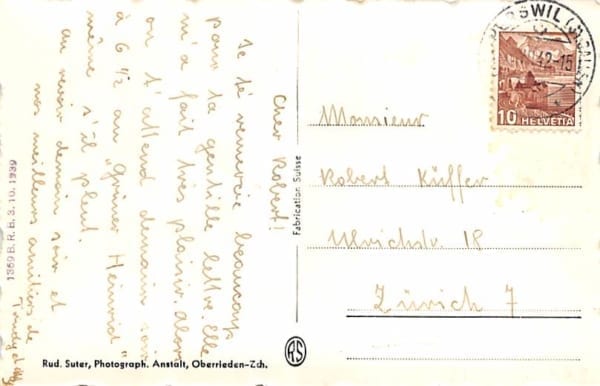 Cher Robert!
Je te remercie beaucoup
pour ta gentille lettre. Elle
m'a fait très plaisir. Alors
on t'attend demain soir
à 6 1/2 au "Grüner Heinrich"
même s'il pleut.
au revoir demain soir et
nos meilleurs amitiés de
Trudy et
Monsieur
Robert Küffer
Ulrichstr. 18
Zürich 7
Fabrication Suisse
1369 B. R. B. 3. 10. 1939
Rud. Suter, Photograph. Anstalt, Oberrieden-Zch.
RS
10 HELVETIA
42-15